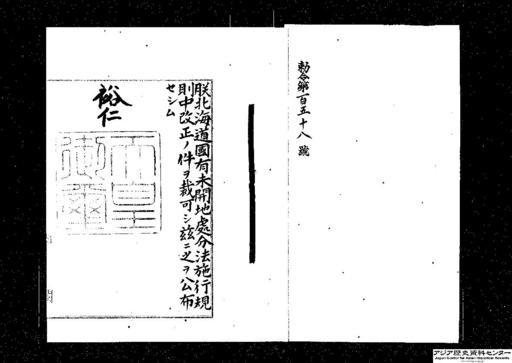 勅令第百五十八號
朕北海道國有未開地處分法施行規
則中改正ノ件ヲ裁可シ茲ニ之ヲ公布
セシム
裕仁
天皇御璽
アジア歴史資料センター
Japan Center for Asian Historical Records